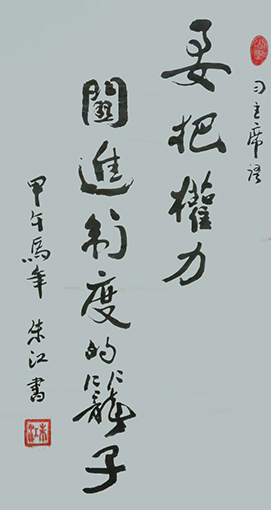 习主席语
要把權力
關進制度的籠子
甲午馬年 朱江書
朱江